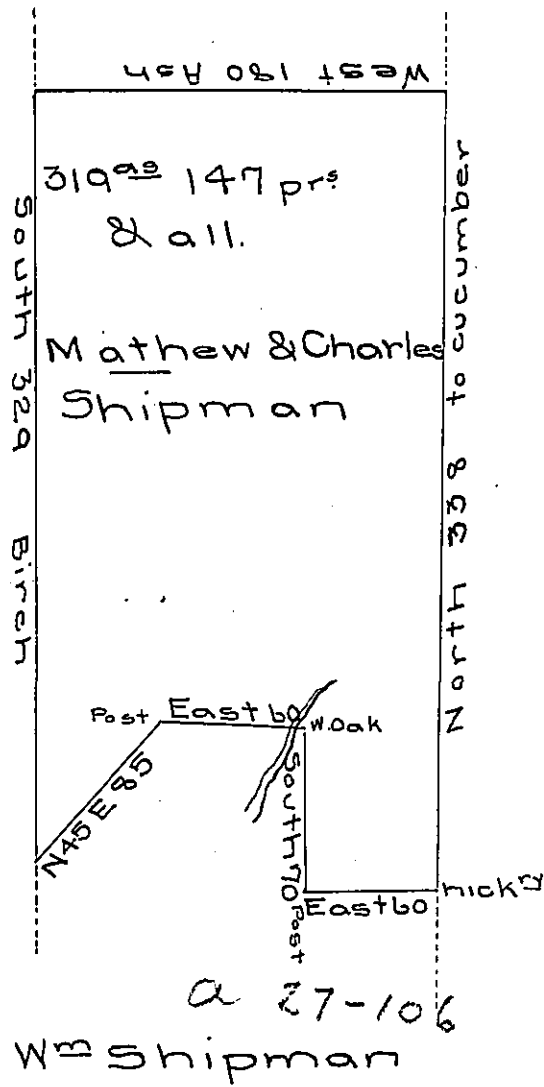 West 180 Ash
319as 147 prs
& all.
Mathew & Charles
Shipman
South 329 Birch
North 338 to cucumber
Post East 60 W.Oak
N45E85
South 70 Post
East 60 hickry
a 27-106
Wm Shipman